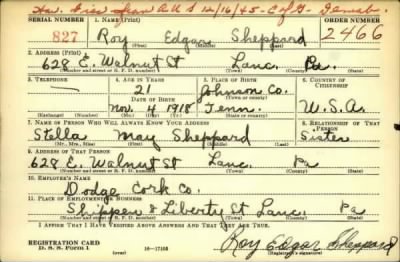 Hon. Disc. from A.U.S 12/16/45 - C of G -
SERIAL NUMBER 1. NAME (Print) ORDER NUMBER
827 Roy Edgar Sheppard 2466
(First) (Middle) (Last)
2. ADDRESS (Print)
628 E. Walnut St Lanc. Pa.
(Number and street or R. F. D. number) (Town) (County) (State)
3. TELEPHONE 4. AGE IN YEARS 5. PLACE OF BIRTH 6. COUNTRY OF CITIZENSHIP
— 21 Johnson Co.
DATE OF BIRTH (Town or county)
Nov. 4 1918 Tenn. U.S.A.
(Exchange) (Number) (Mo.) (Day) (Yr.) (State or country)
7. NAME OF PERSON WHO WILL ALWAYS KNOW YOUR ADDRESS 8. RELATIONSHIP OF THAT PERSON
Stella May Sheppard Sister
(Mr., Mrs., Miss) (First) (Middle) (Last)
9. ADDRESS OF THAT PERSON
628 E. Walnut St Lanc. Pa
(Number and street or R. F. D. number) (Town) (County) (State)
10. EMPLOYER'S NAME
Dodge Cork Co.
11. PLACE OF EMPLOYMENT OR BUSINESS
Shippen & Liberty St Lanc. Pa
(Number and street or R. F. D. number) (Town) (County) (State)
I AFFIRM THAT I HAVE VERIFIED ABOVE ANSWERS AND THAT THEY ARE TRUE.
REGISTRATION CARD
D. S. S. Form 1 (over) 16-17105 Roy Edgar Sheppard
(Registrant's signature)